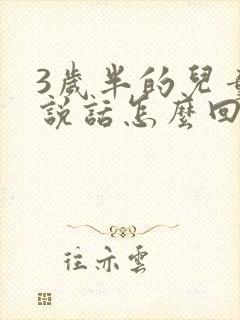 3歲半的兒
說話怎麼回
往亦雲